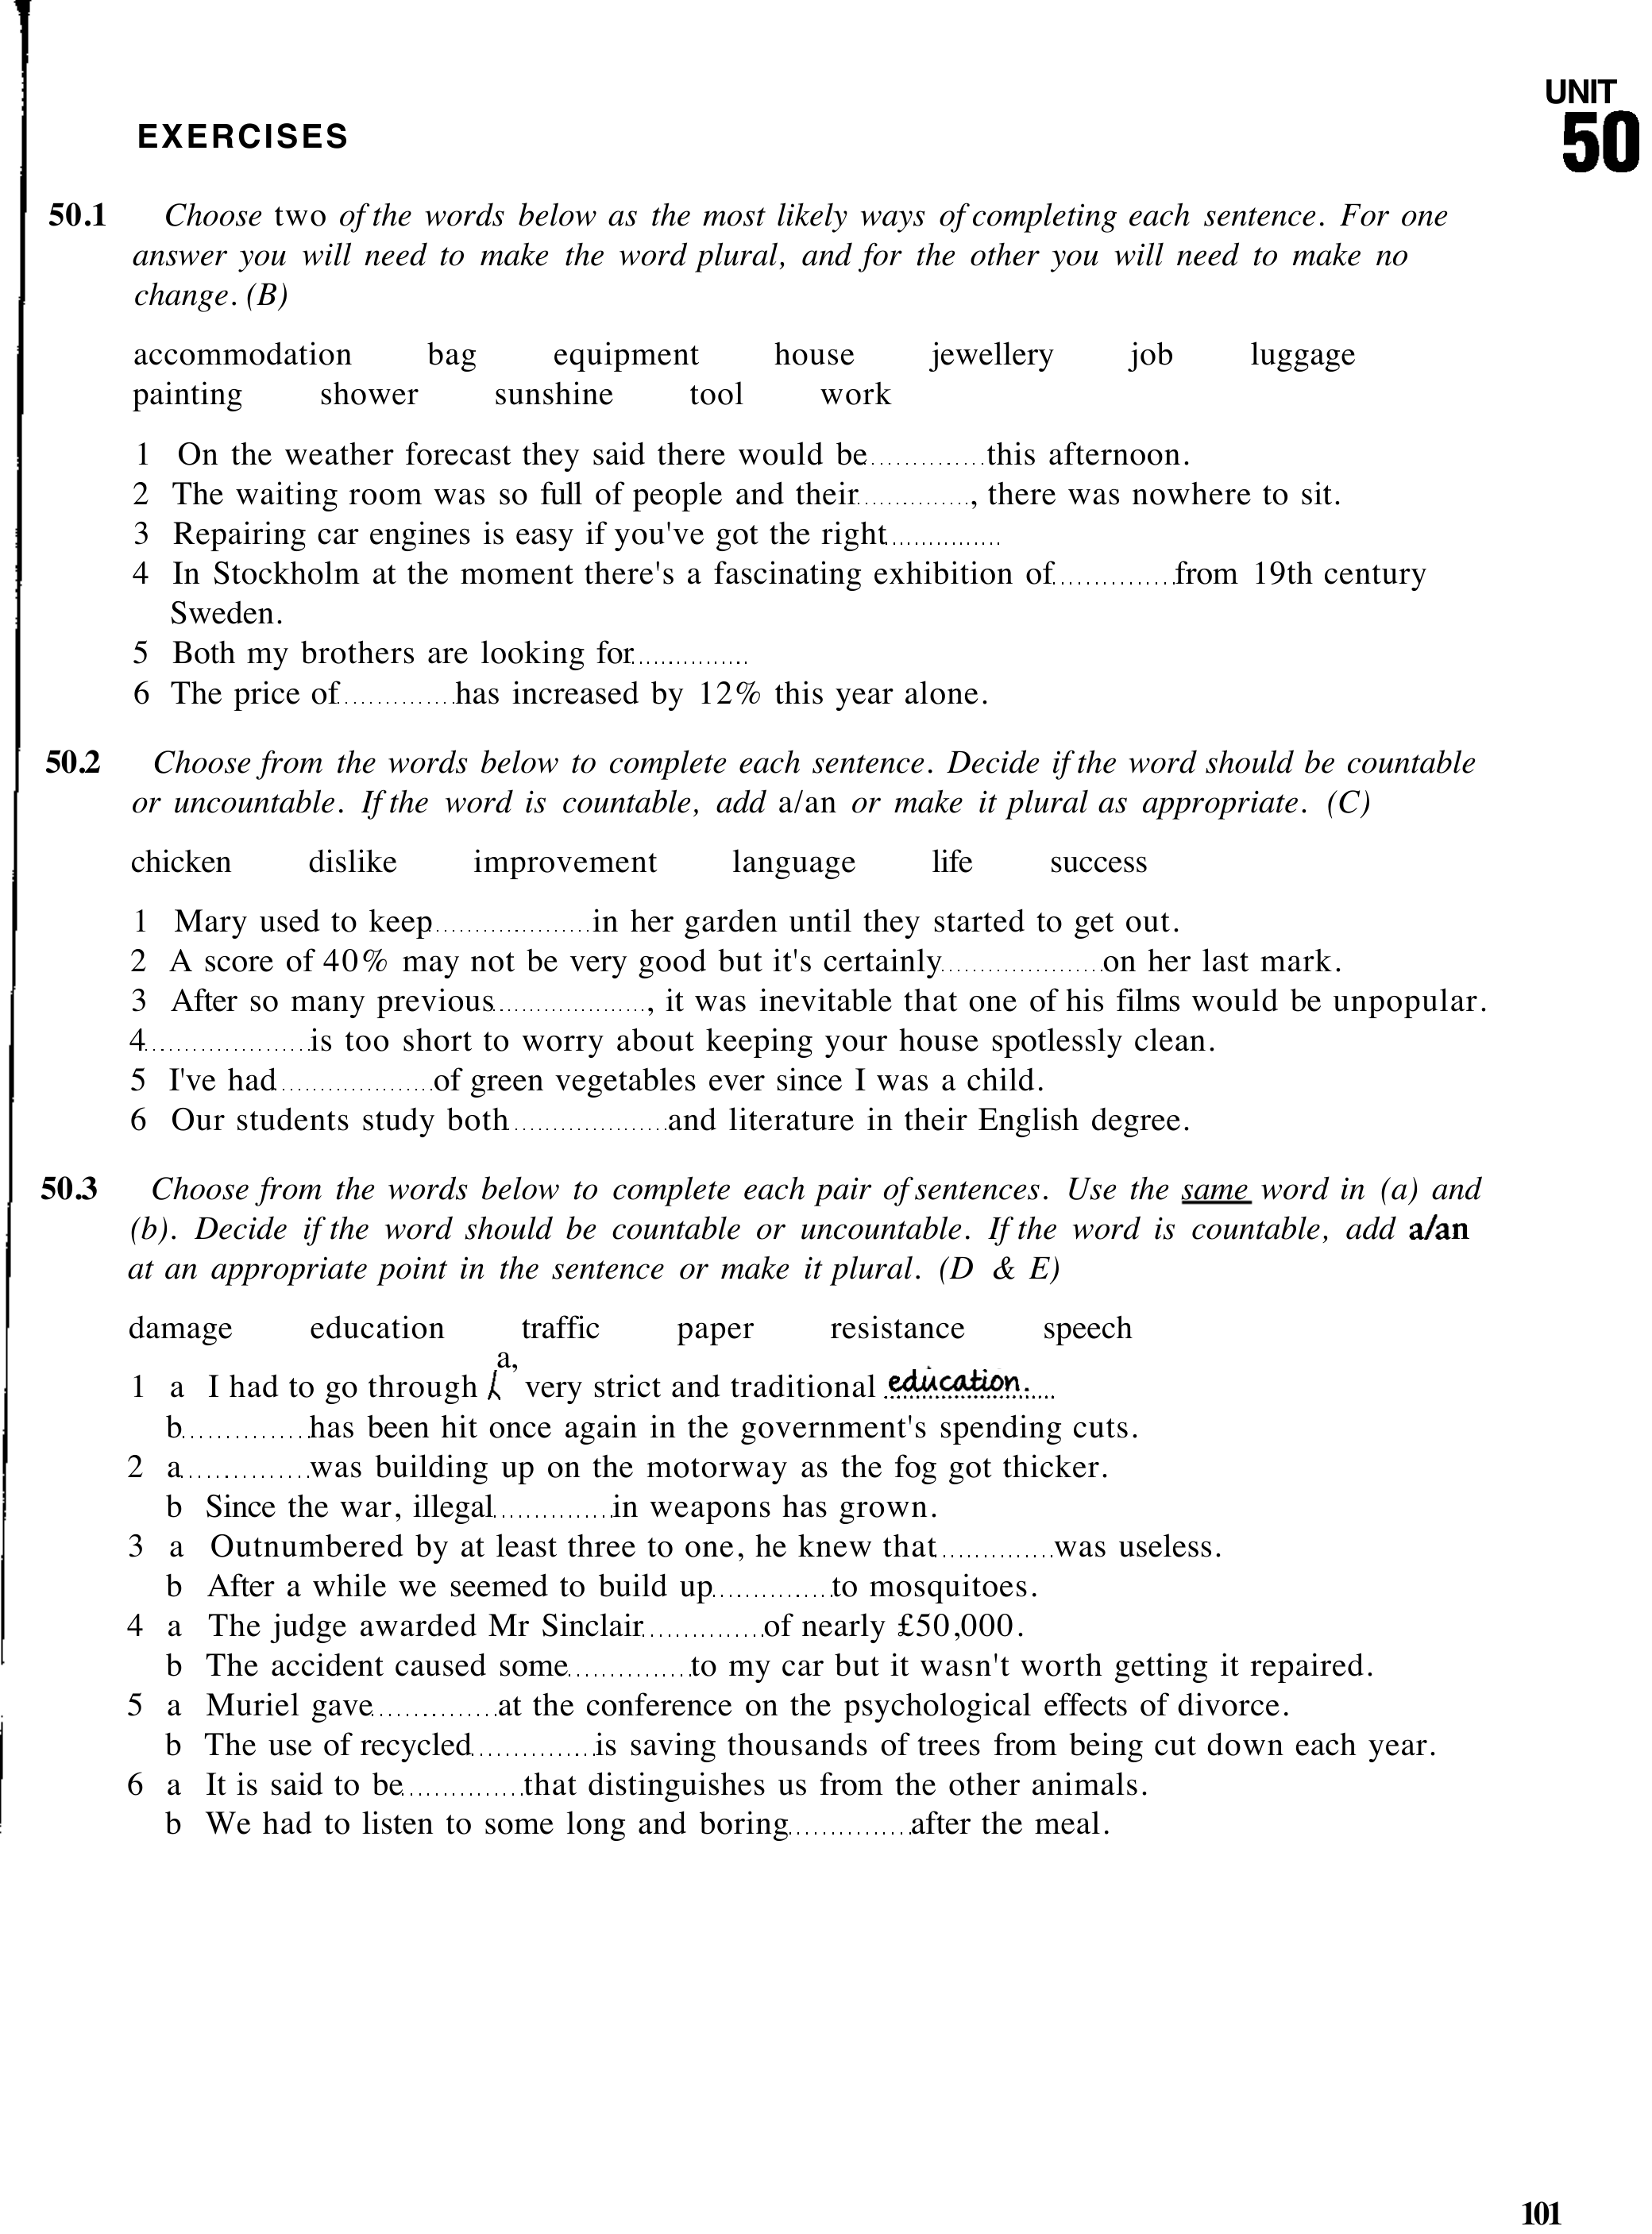 UNIT
50
EXERCISES
50.1 Choose two of the words below as the most likely ways of completing each sentence. For one
answer you will need to make the word plural, and for the other you will need to make no
change. (B)
accommodation bag equipment house jewellery job luggage
painting shower sunshine tool work
1 On the weather forecast they said there would be..............this afternoon.
2 The waiting room was so full of people and their.............., there was nowhere to sit.
3 Repairing car engines is easy if you've got the right...............
4 In Stockholm at the moment there's a fascinating exhibition of..............from 19th century
Sweden.
5 Both my brothers are looking for...............
6 The price of..............has increased by 12% this year alone.
50.2 Choose from the words below to complete each sentence. Decide if the word should be countable
or uncountable. If the word is countable, add a/an or make it plural as appropriate. (C)
chicken dislike improvement language life success
1 Mary used to keep....................in her garden until they started to get out.
2 A score of 40% may not be very good but it's certainly....................on her last mark.
3 After so many previous...................., it was inevitable that one of his films would be unpopular.
4.....................is too short to worry about keeping your house spotlessly clean.
5 I've had....................of green vegetables ever since I was a child.
6 Our students study both....................and literature in their English degree.
50.3 Choose from the words below to complete each pair of sentences. Use the same word in (a) and
(b). Decide if the word should be countable or uncountable. If the word is countable, add a/an
at an appropriate point in the sentence or make it plural. (D & E)
damage education traffic paper resistance speech
a,
1 a I had to go through very strict and traditional education.
b...............has been hit once again in the government's spending cuts.
2 a...............was building up on the motorway as the fog got thicker.
b Since the war, illegal..............in weapons has grown.
3 a Outnumbered by at least three to one, he knew that..............was useless.
b After a while we seemed to build up..............to mosquitoes.
4 a The judge awarded Mr Sinclair..............of nearly £50,000.
b The accident caused some..............to my car but it wasn't worth getting it repaired.
5 a Muriel gave..............at the conference on the psychological effects of divorce.
b The use of recycled..............is saving thousands of trees from being cut down each year.
6 a It is said to be..............that distinguishes us from the other animals.
b We had to listen to some long and boring..............after the meal.
101